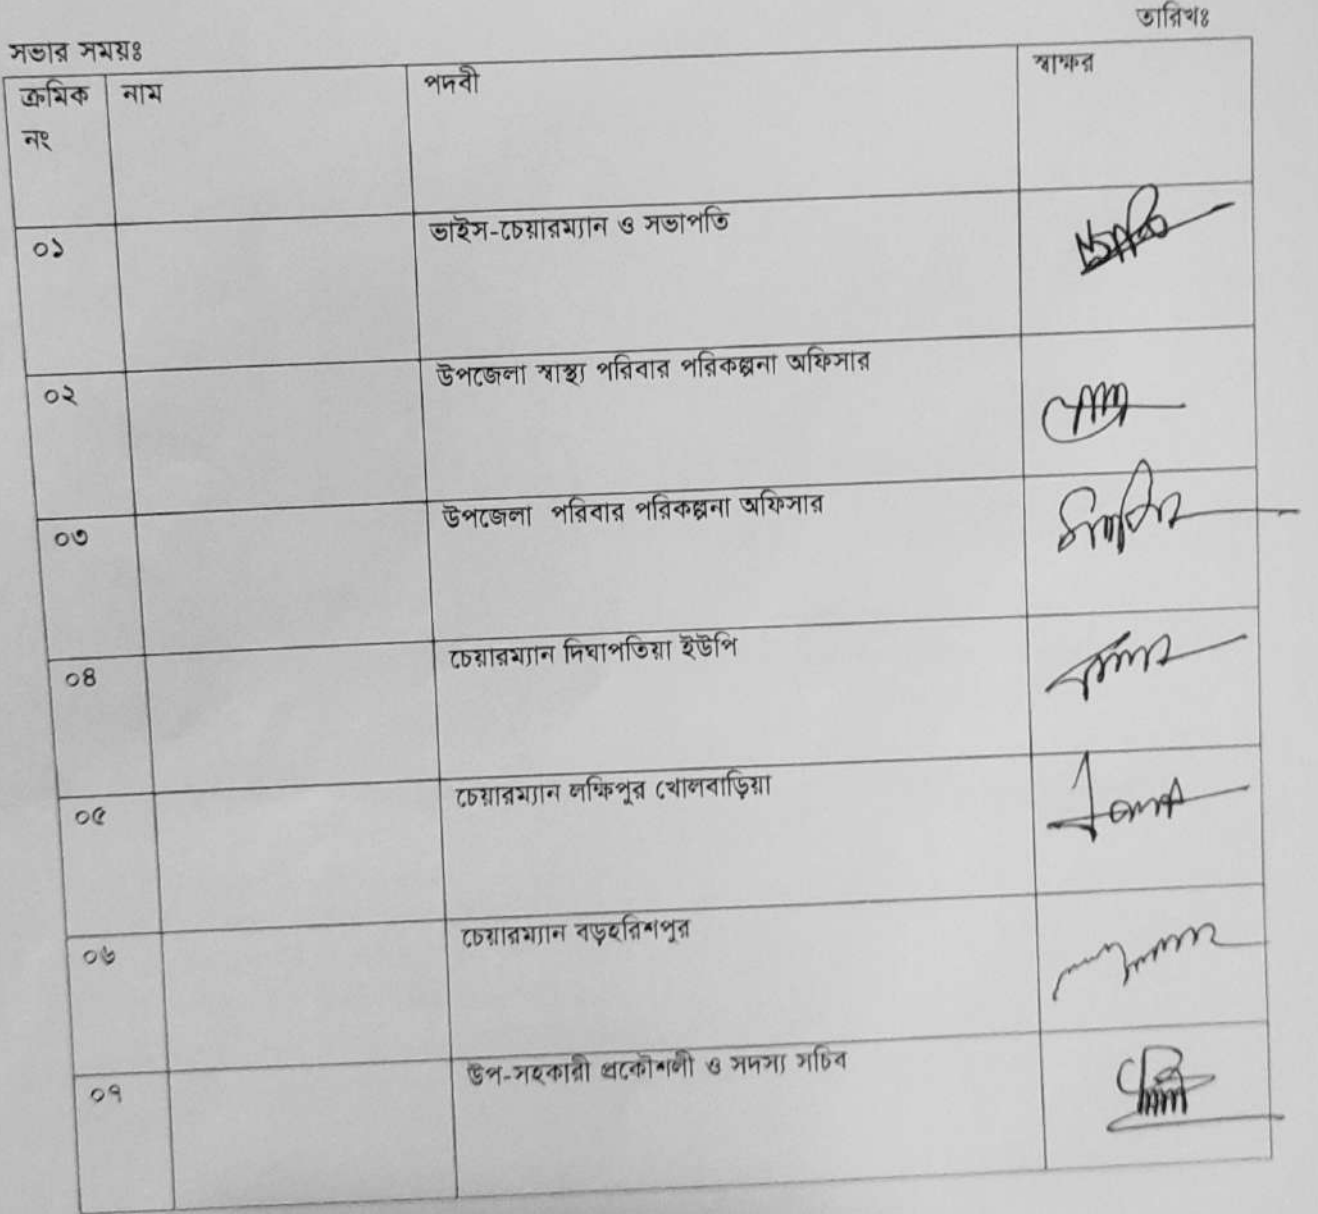 তারিখঃ
সভার সময়ঃ
ক্রমিক নং নাম পদবী স্বাক্ষর
০১ ভাইস-চেয়ারম্যান ও সভাপতি
০২ উপজেলা স্বাস্থ্য পরিবার পরিকল্পনা অফিসার
০৩ উপজেলা পরিবার পরিকল্পনা অফিসার
০৪ চেয়ারম্যান দিঘাপতিয়া ইউপি
০৫ চেয়ারম্যান লক্ষিপুর খোলবাড়িয়া
০৬ চেয়ারম্যান বড়হরিশপুর
০৭ উপ-সহকারী প্রকৌশলী ও সদস্য সচিব